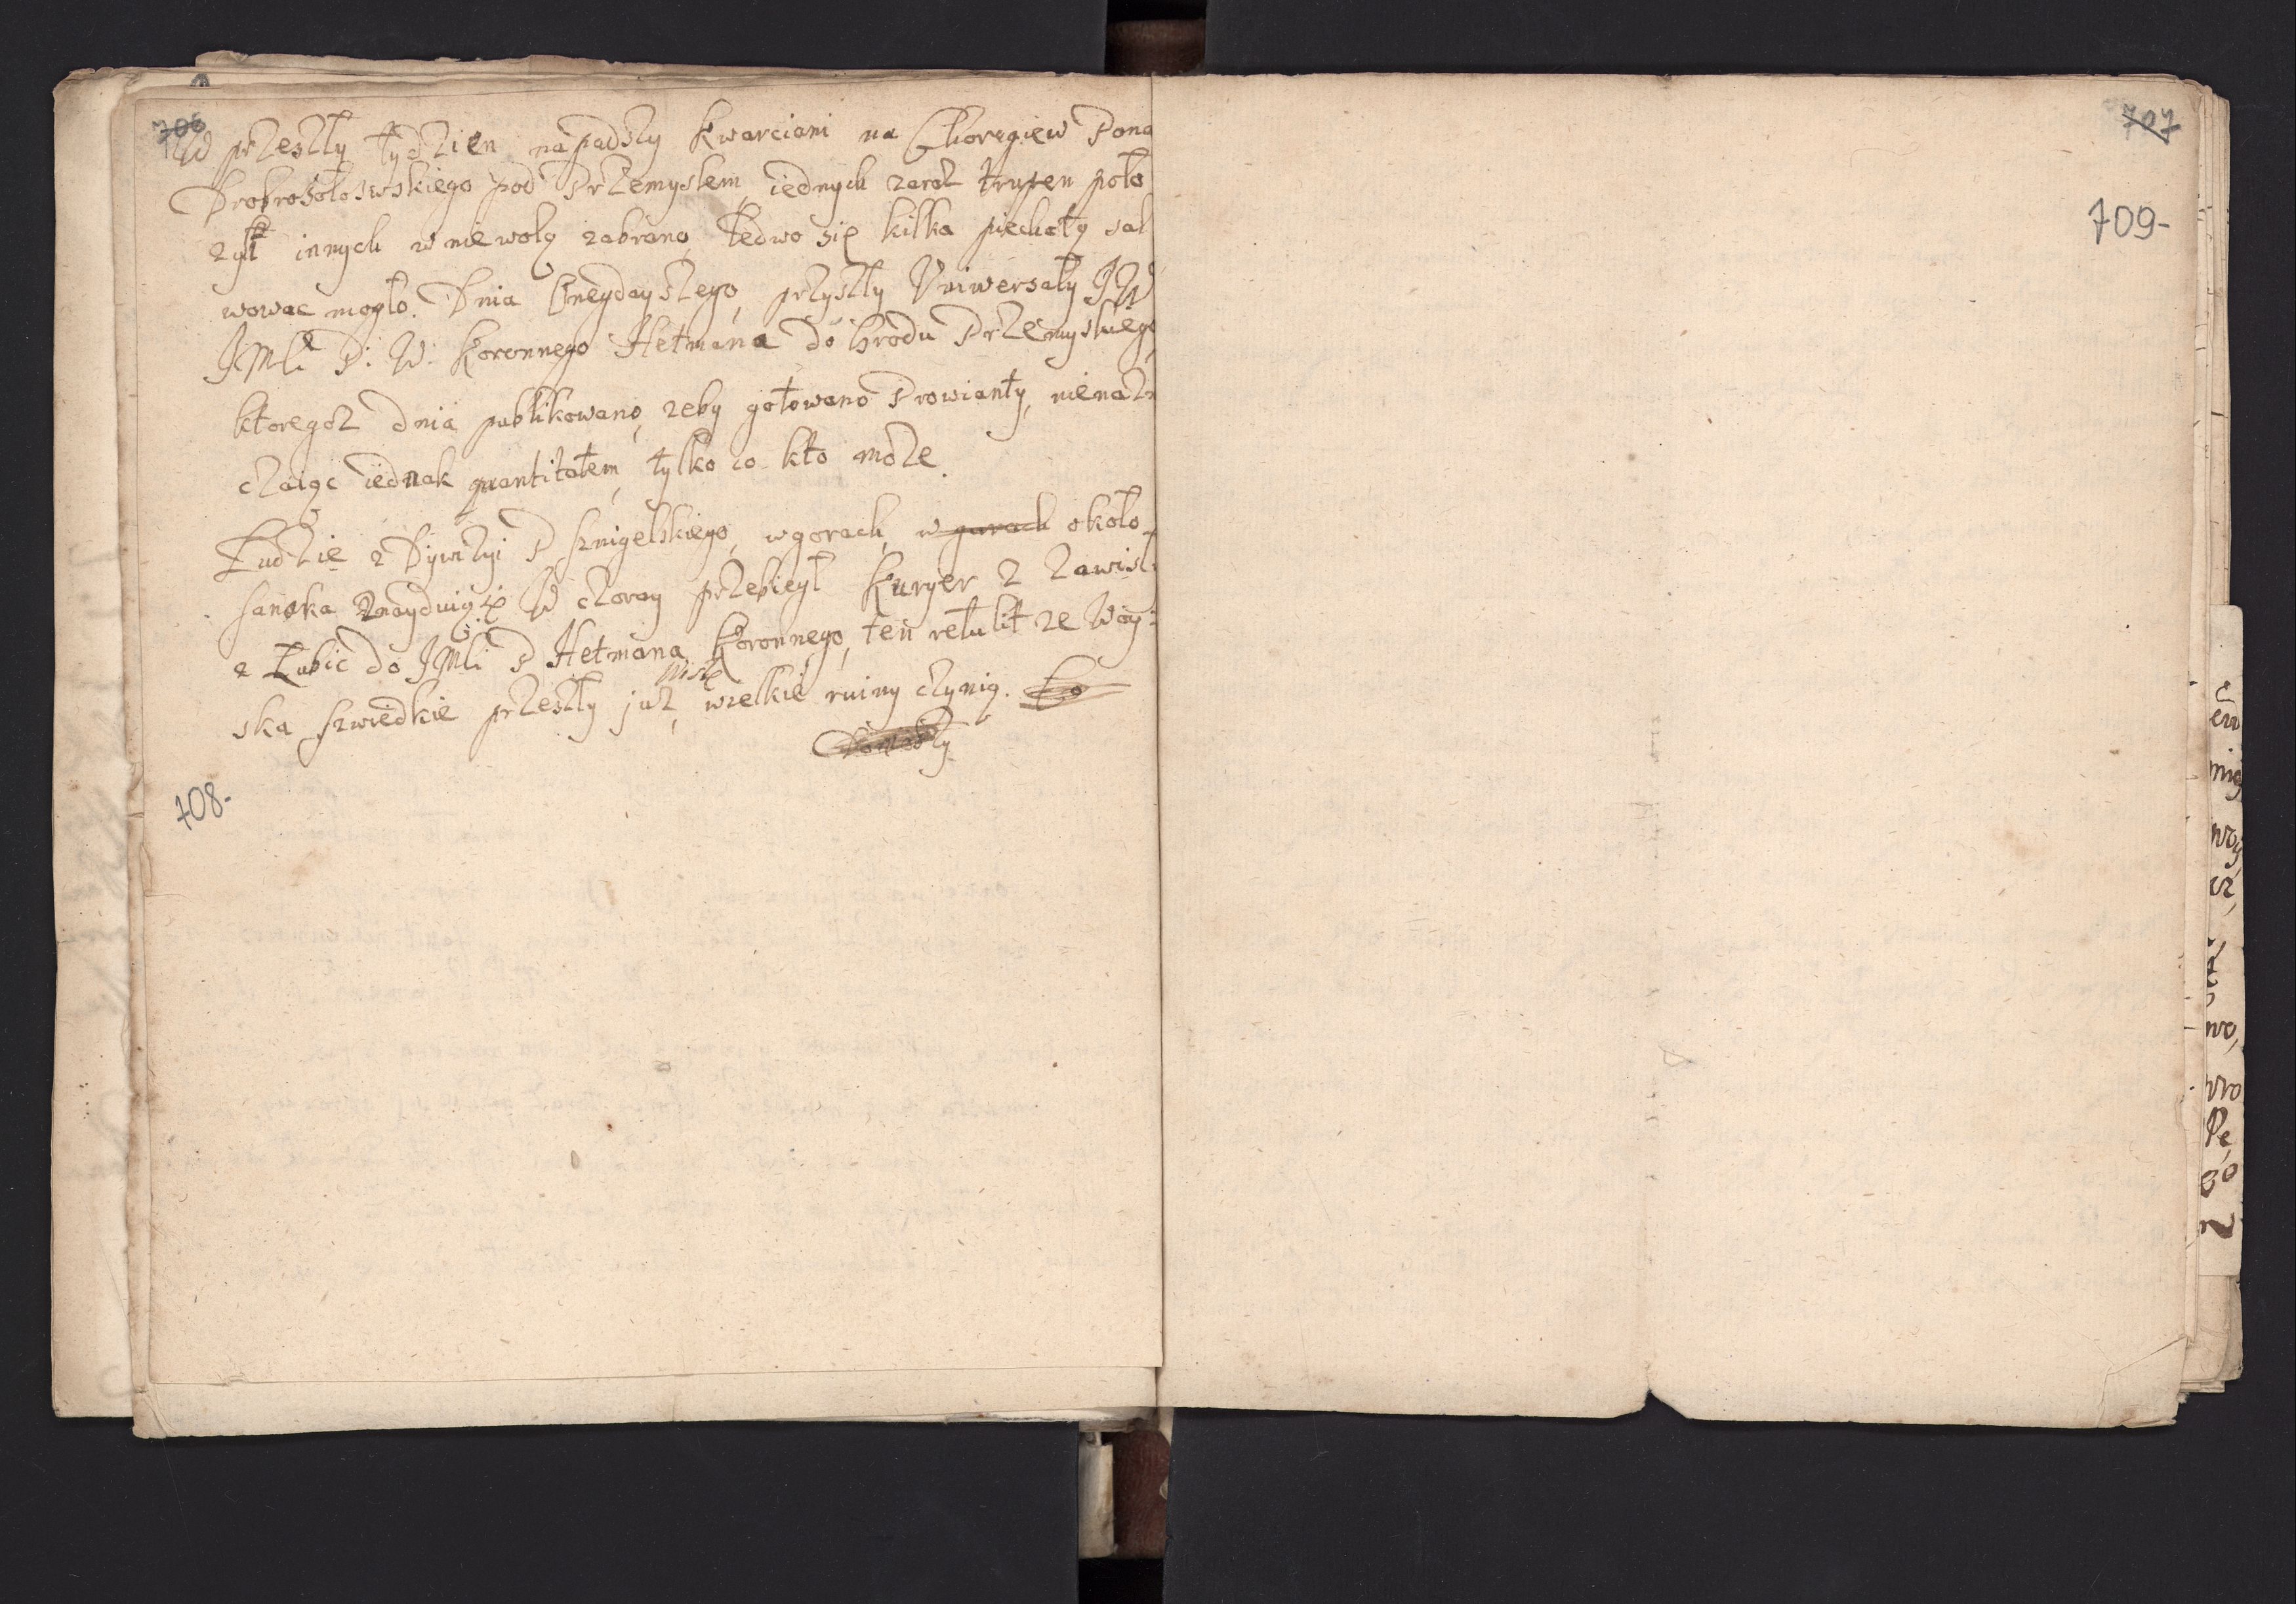 706
W przeszły tydzien napadszy Kwarciani na Choręgiew Pana
Drobrosołowskiego pod Przemyslem, iednych zaraz trupen poło
zył innych w niewolą zabrano, Ledwo się kilka piechoty sal
wowac mogło. Dnia onegdayszego, przyszły Vniwersały JW
JMLi P: W: Koronnego Hetmana do Grodu Przemyskiego
ktoregoz dnia publikowano, zeby gotowano Prowianty, nienazn
czaiąc iednak quantitatem, tylko co kto moze.
Ludzie z Dywizyi P Szmigelskiego, w gorach, w gorach około
Sanoka znayduią się W czoray przebiegł Kuryer z Zawisł
z Łubic do JMLi P Hetmana Koronnego, ten retulit ze Woy:
ska Szwedkie przeszły juz Wisłę, wielkie ruiny czynią.
708-
707
709-